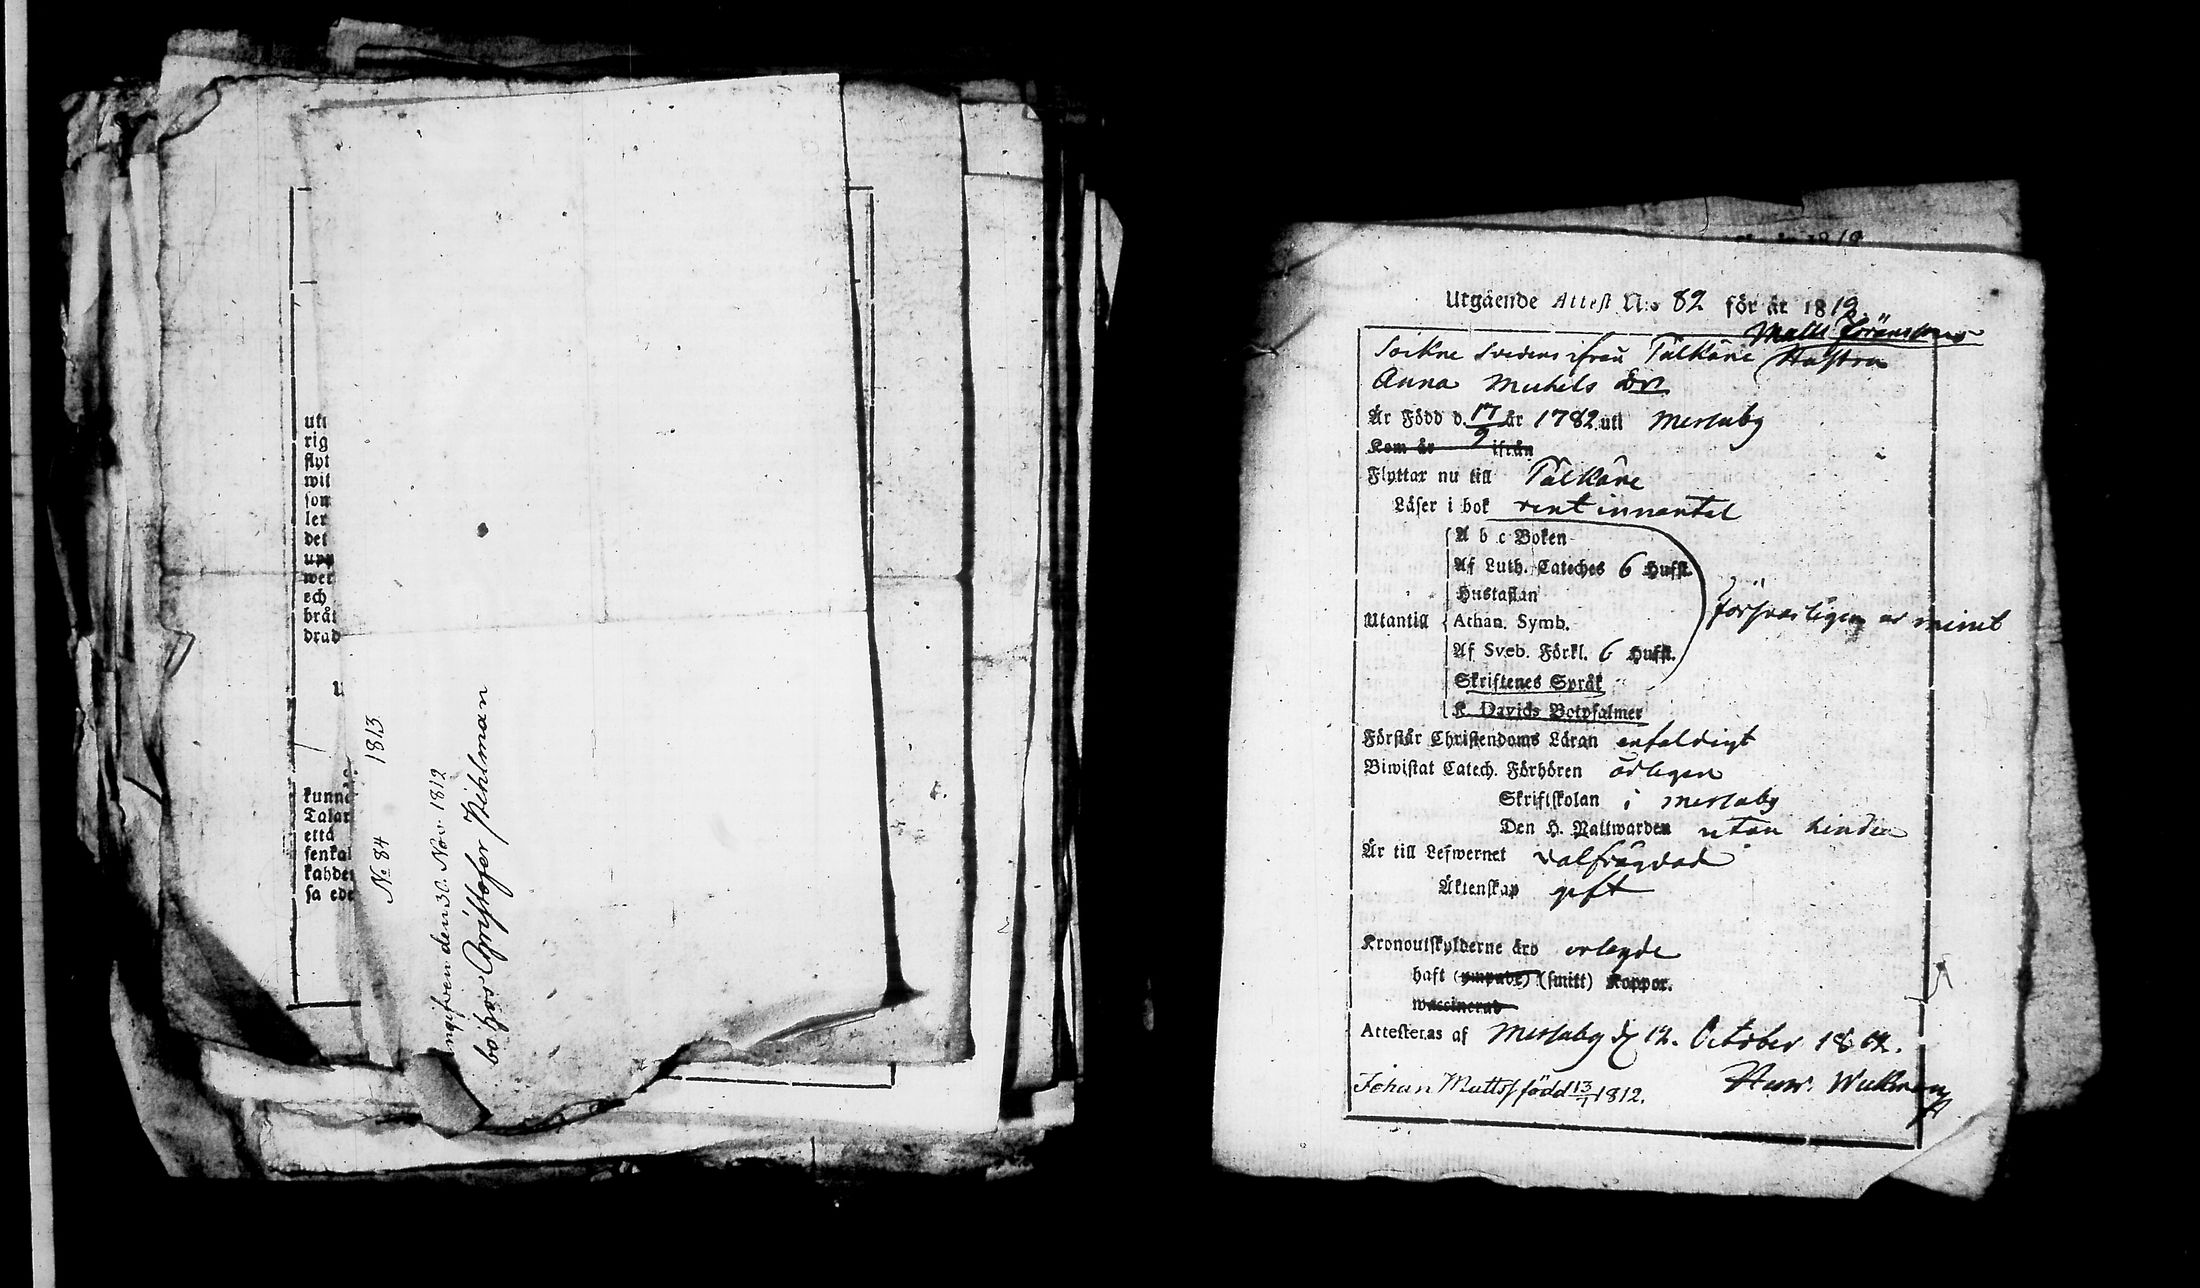 uti
rig
flyt
wit
som
ler
det
upp
wer
ech
bråt
drad
kunna
Talar
että
senkal
kahder
sa ede
No 84 1813
ingifven den 30. Nov. 1812
Utgående Attest N:o 82 för år 1812.
Matts Göransons
Sockne Svedens ifrån Pälkäne Hustru
Anna Michels Dr
Är Född d. 17/9 år 1782 uti Messuby
Kom år ifrån
Flyttar nu till Pälkäne
Läser i bok rent innantil
A b c Boken
Af Luth. Cateches 6 Hufst.
Hustaflan
Utantill Athan. Symb. försvarligen ur minet
Af Sveb. Förkl. 6 Hufst.
Skriftenes Språk
K. Davids Botpsalmer
Förstår Christendoms Läran enfaldigt
Biwistat Catech. Förhören årligen
Skriftskolan i Messuby
Den H. Nattwarden utan hinder
Är till Lefwernet välfrägdad
Äktenskap gift
Kronoutskylderne äro erlagde
haft (ympade) (smitt) Koppor.
waccinerad
Attesteras af Messuby d. 12. October 1812.
Johan Mattss född 13/1 1812.